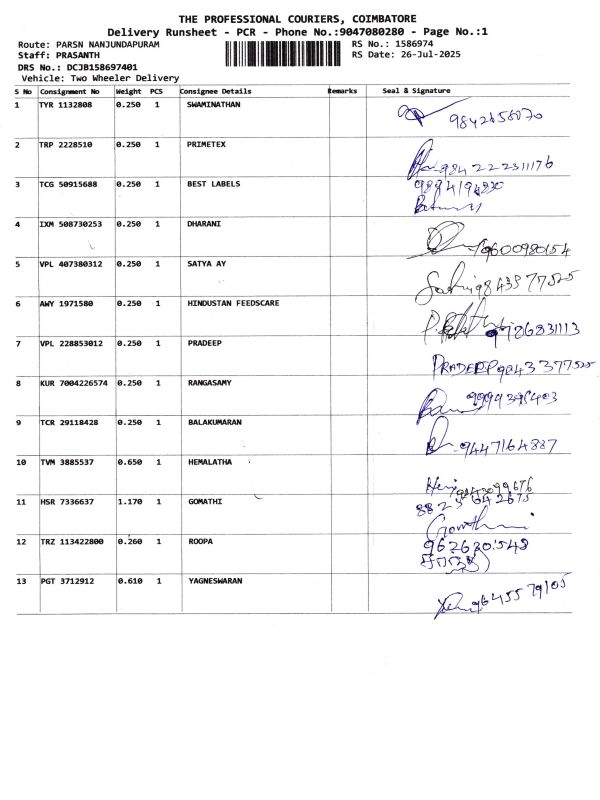 THE PROFESSIONAL COURIERS, COIMBATORE
Delivery Runsheet - PCR - Phone No.:9047080280 - Page No.:1
Route: PARSN NANJUNDAPURAM RS No.: 1586974
Staff: PRASANTH RS Date: 26-Jul-2025
DRS No.: DCJB158697401
Vehicle: Two Wheeler Delivery
S No Consignment No Weight PCS Consignee Details Remarks Seal & Signature
1 TYR 1132808 0.250 1 SWAMINATHAN
2 TRP 2228510 0.250 1 PRIMETEX
3 TCG 50915688 0.250 1 BEST LABELS
4 IXM 508730253 0.250 1 DHARANI 9600980154
5 VPL 407380312 0.250 1 SATYA AY 9843377525
6 AWY 1971580 0.250 1 HINDUSTAN FEEDSCARE 9786831113
7 VPL 228853012 0.250 1 PRADEEP PRADEEP 9843377525
8 KUR 7004226574 0.250 1 RANGASAMY
9 TCR 29118428 0.250 1 BALAKUMARAN 9447164887
10 TVM 3885537 0.650 1 HEMALATHA
11 HSR 7336637 1.170 1 GOMATHI
8825642675
Gomathi
12 TRZ 113422800 0.260 1 ROOPA
13 PGT 3712912 0.610 1 YAGNESWARAN 9645579105